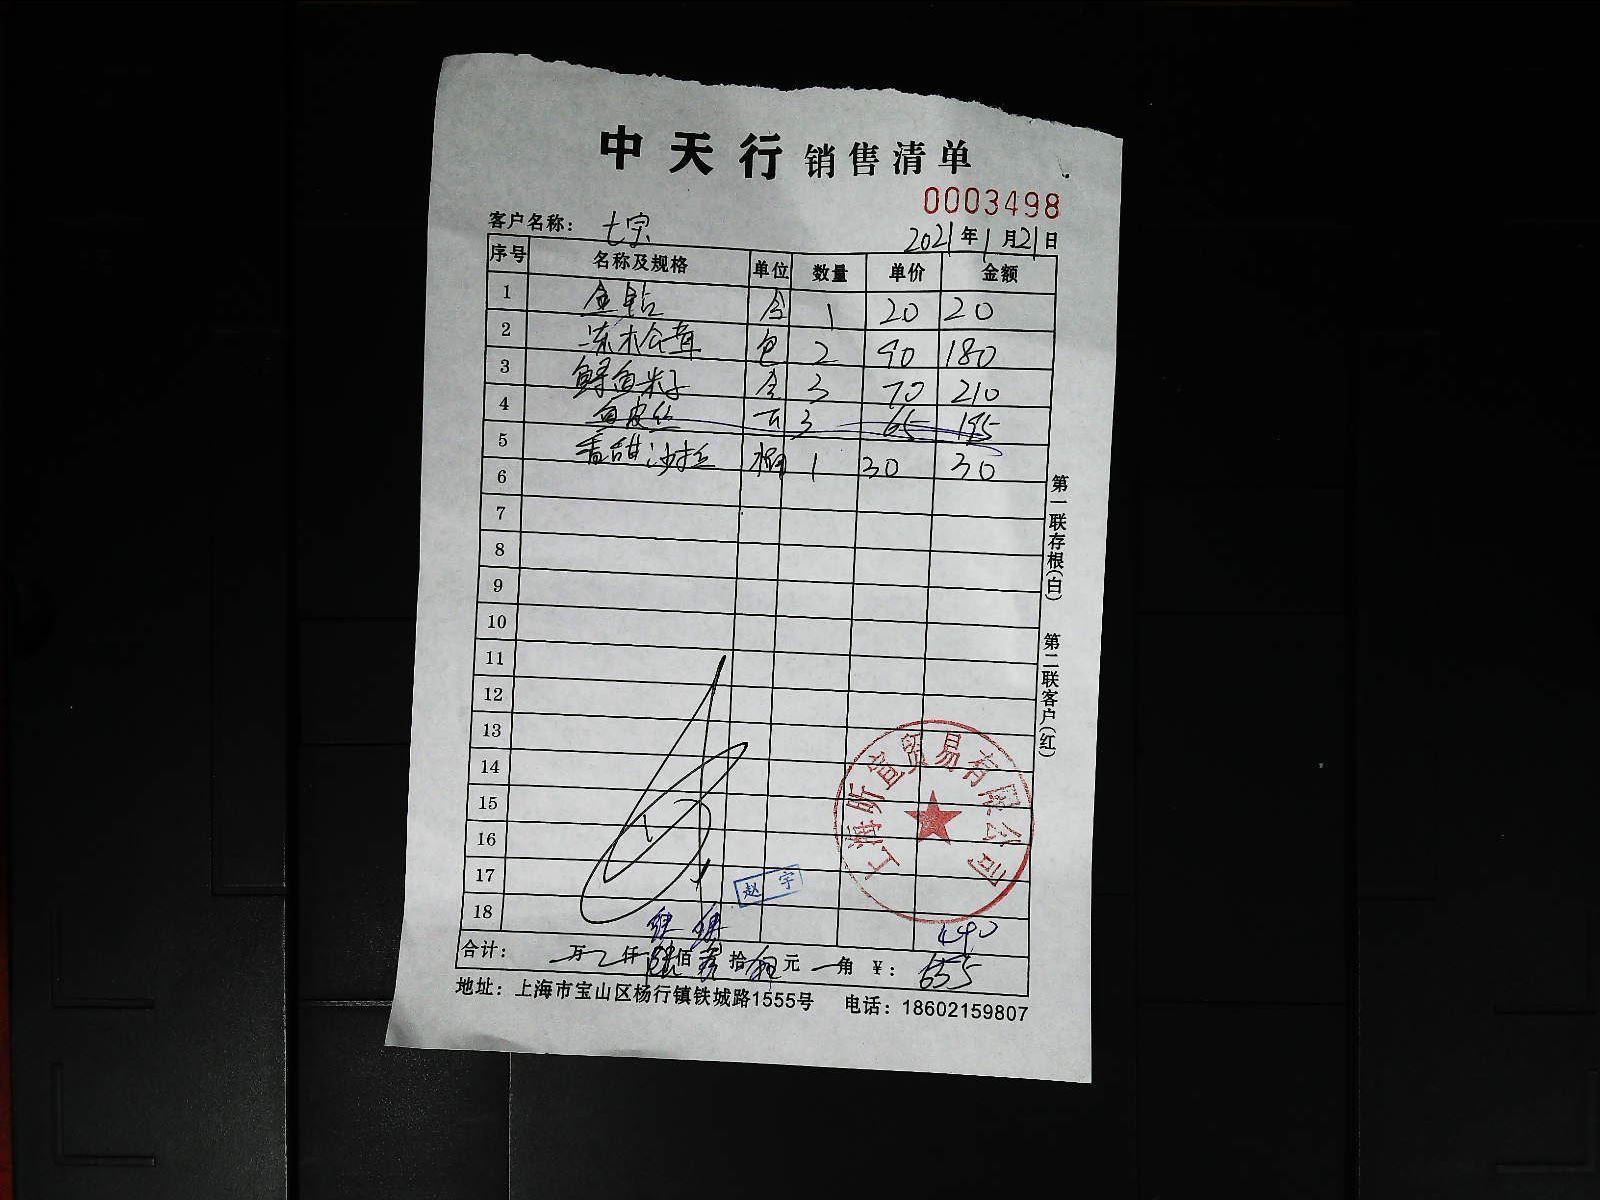 中天行 销售清单
0003498
客户名称： 七宗
2021年1月21日
序号 名称及规格 单位 数量 单价 金额
1 金钻 盒 1 20 20
2 冻木合茸 包 2 90 180
3 鲟鱼米子 盒 3 70 210
4 鱼皮丝 3 65 195
5 香甜沙拉 桶 1 30 30
6
7
8
9
10
11
12
13
14
15
16
17
18
440
合计： 万 仟 陆佰 叁拾 伍元 角 ￥： 655
地址：上海市宝山区杨行镇铁城路1555号 电话：18602159807
第一联存根（白） 第二联客户（红）
上海昕宣贸易有限公司
赵宇